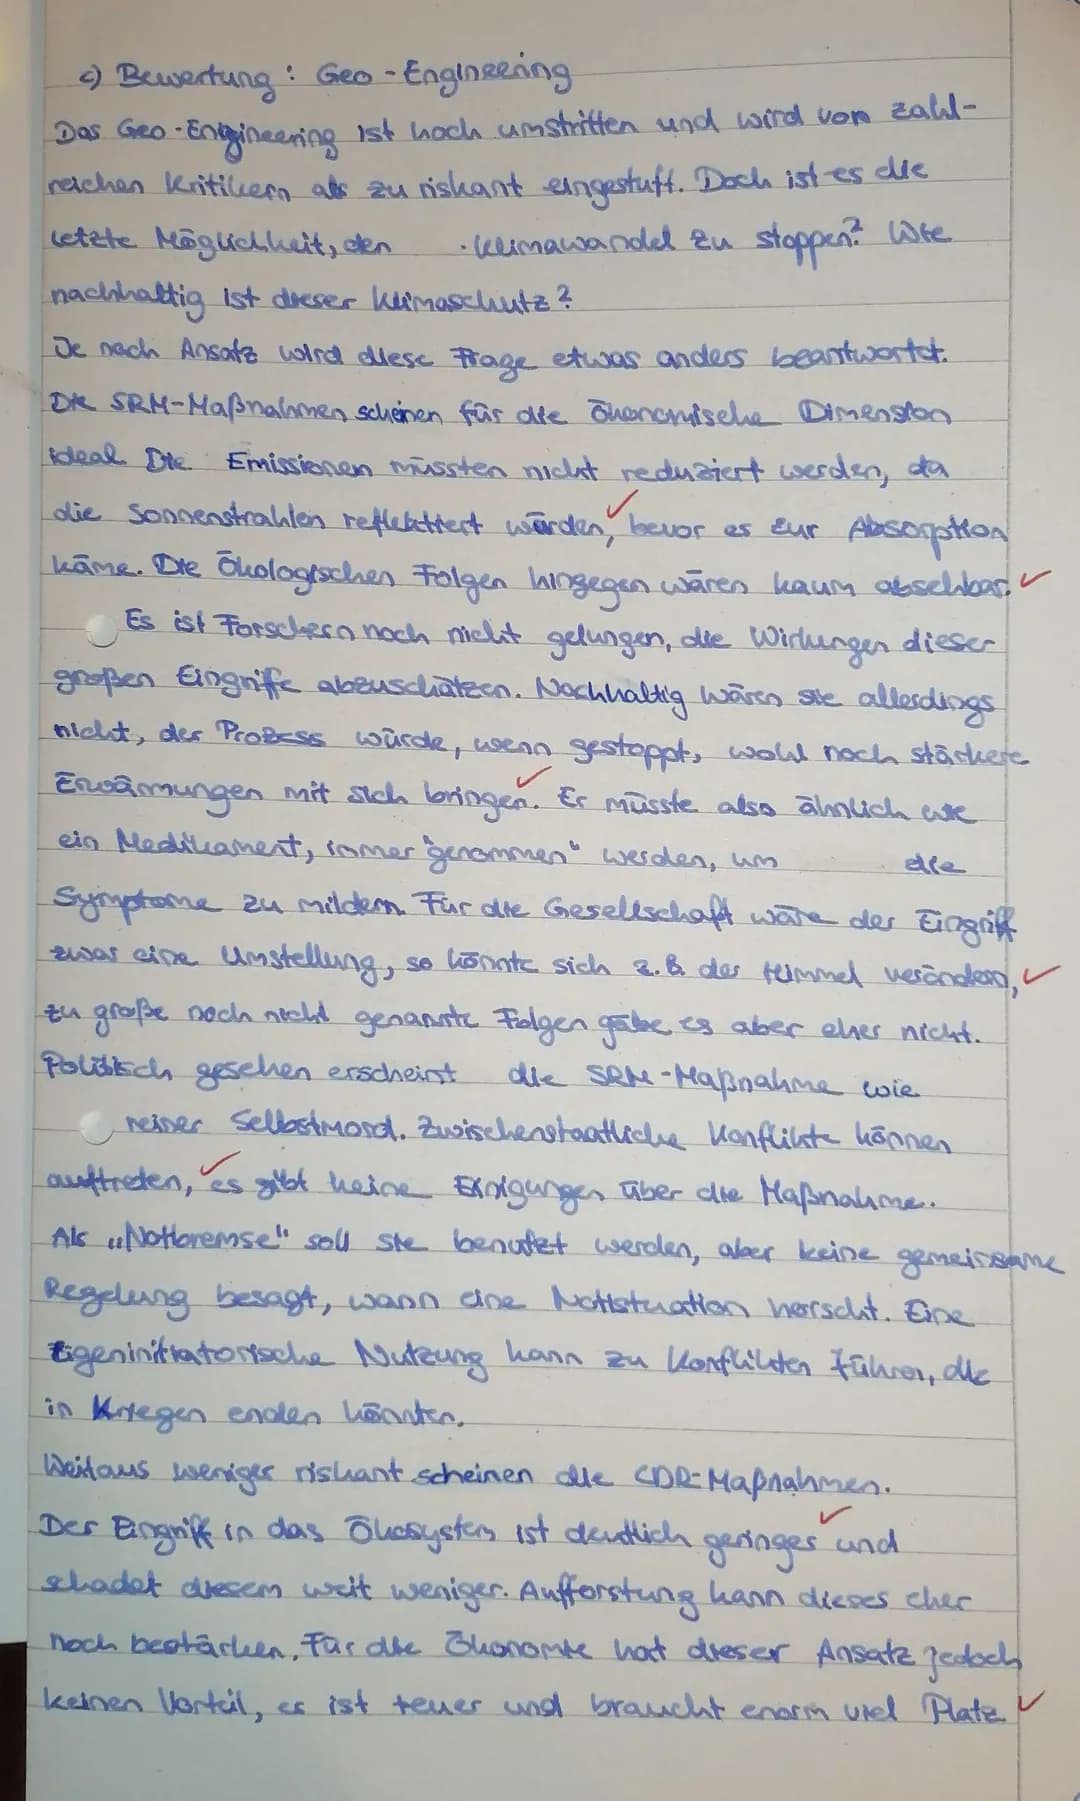 c) Bewertung: Geo-Engineering
Das Geo-Engineering ist hoch umstritten und wird von zahl-
reichen Kritikern als zu riskant eingestuft. Doch ist es die
letzte Möglichkeit, den Klimawandel zu stoppen? Wie
nachhaltig ist dieser Klimaschutz?
Je nach Ansatz wird diese Frage etwas anders beantwortet.
Die SRM-Maßnahmen scheinen für die Ökonomische Dimension
ideal Die Emissionen müssten nicht reduziert werden, da
die Sonnenstrahlen reflektiert würden, bevor es zur Absorption
käme. Die Ökologischen Folgen hingegen wären kaum absehbar.
Es ist Forschern noch nicht gelungen, die Wirkungen dieser
großen Eingriffe abzuschätzen. Nachhaltig wären sie allerdings
nicht, der Prozess würde, wenn gestoppt, wohl noch stärkere
Erwärmungen mit sich bringen. Er müsste also ähnlich wie
ein Medikament, immer "genommen" werden, um die
Symptome zu mildern. Für die Gesellschaft wäre der Eingriff
zwar eine Umstellung, so könnte sich z.B. der Himmel verändern,
zu große noch nicht genannte Folgen gäbe es aber eher nicht.
Politisch gesehen erscheint die SRM-Maßnahme wie
reiner Selbstmord. Zwischenstaatliche Konflikte können
auftreten, es gibt keine Einigungen über die Maßnahme.
Als „Notbremse" soll sie benutzt werden, aber keine gemeinsame
Regelung besagt, wann eine Notsituation herrscht. Eine
Eigeninitiatorische Nutzung kann zu Konflikten führen, die
in Kriegen enden könnten.
Weitaus weniger riskant scheinen die CDR-Maßnahmen.
Der Eingriff in das Ökosystem ist deutlich geringer und
schadet diesem weit weniger. Aufforstung kann dieses eher
noch bestärken. Für die Ökonomie hat dieser Ansatz jedoch
keinen Vorteil, es ist teuer und braucht enorm viel Platz.